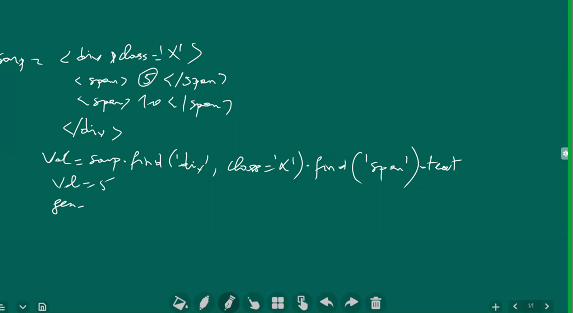 soup = <div class='X'>
<span> 5 </span>
<span> 10 </span>
</div>
Val = soup.find('div', class='X').find('span').text
Val = 5
gen-
1/1